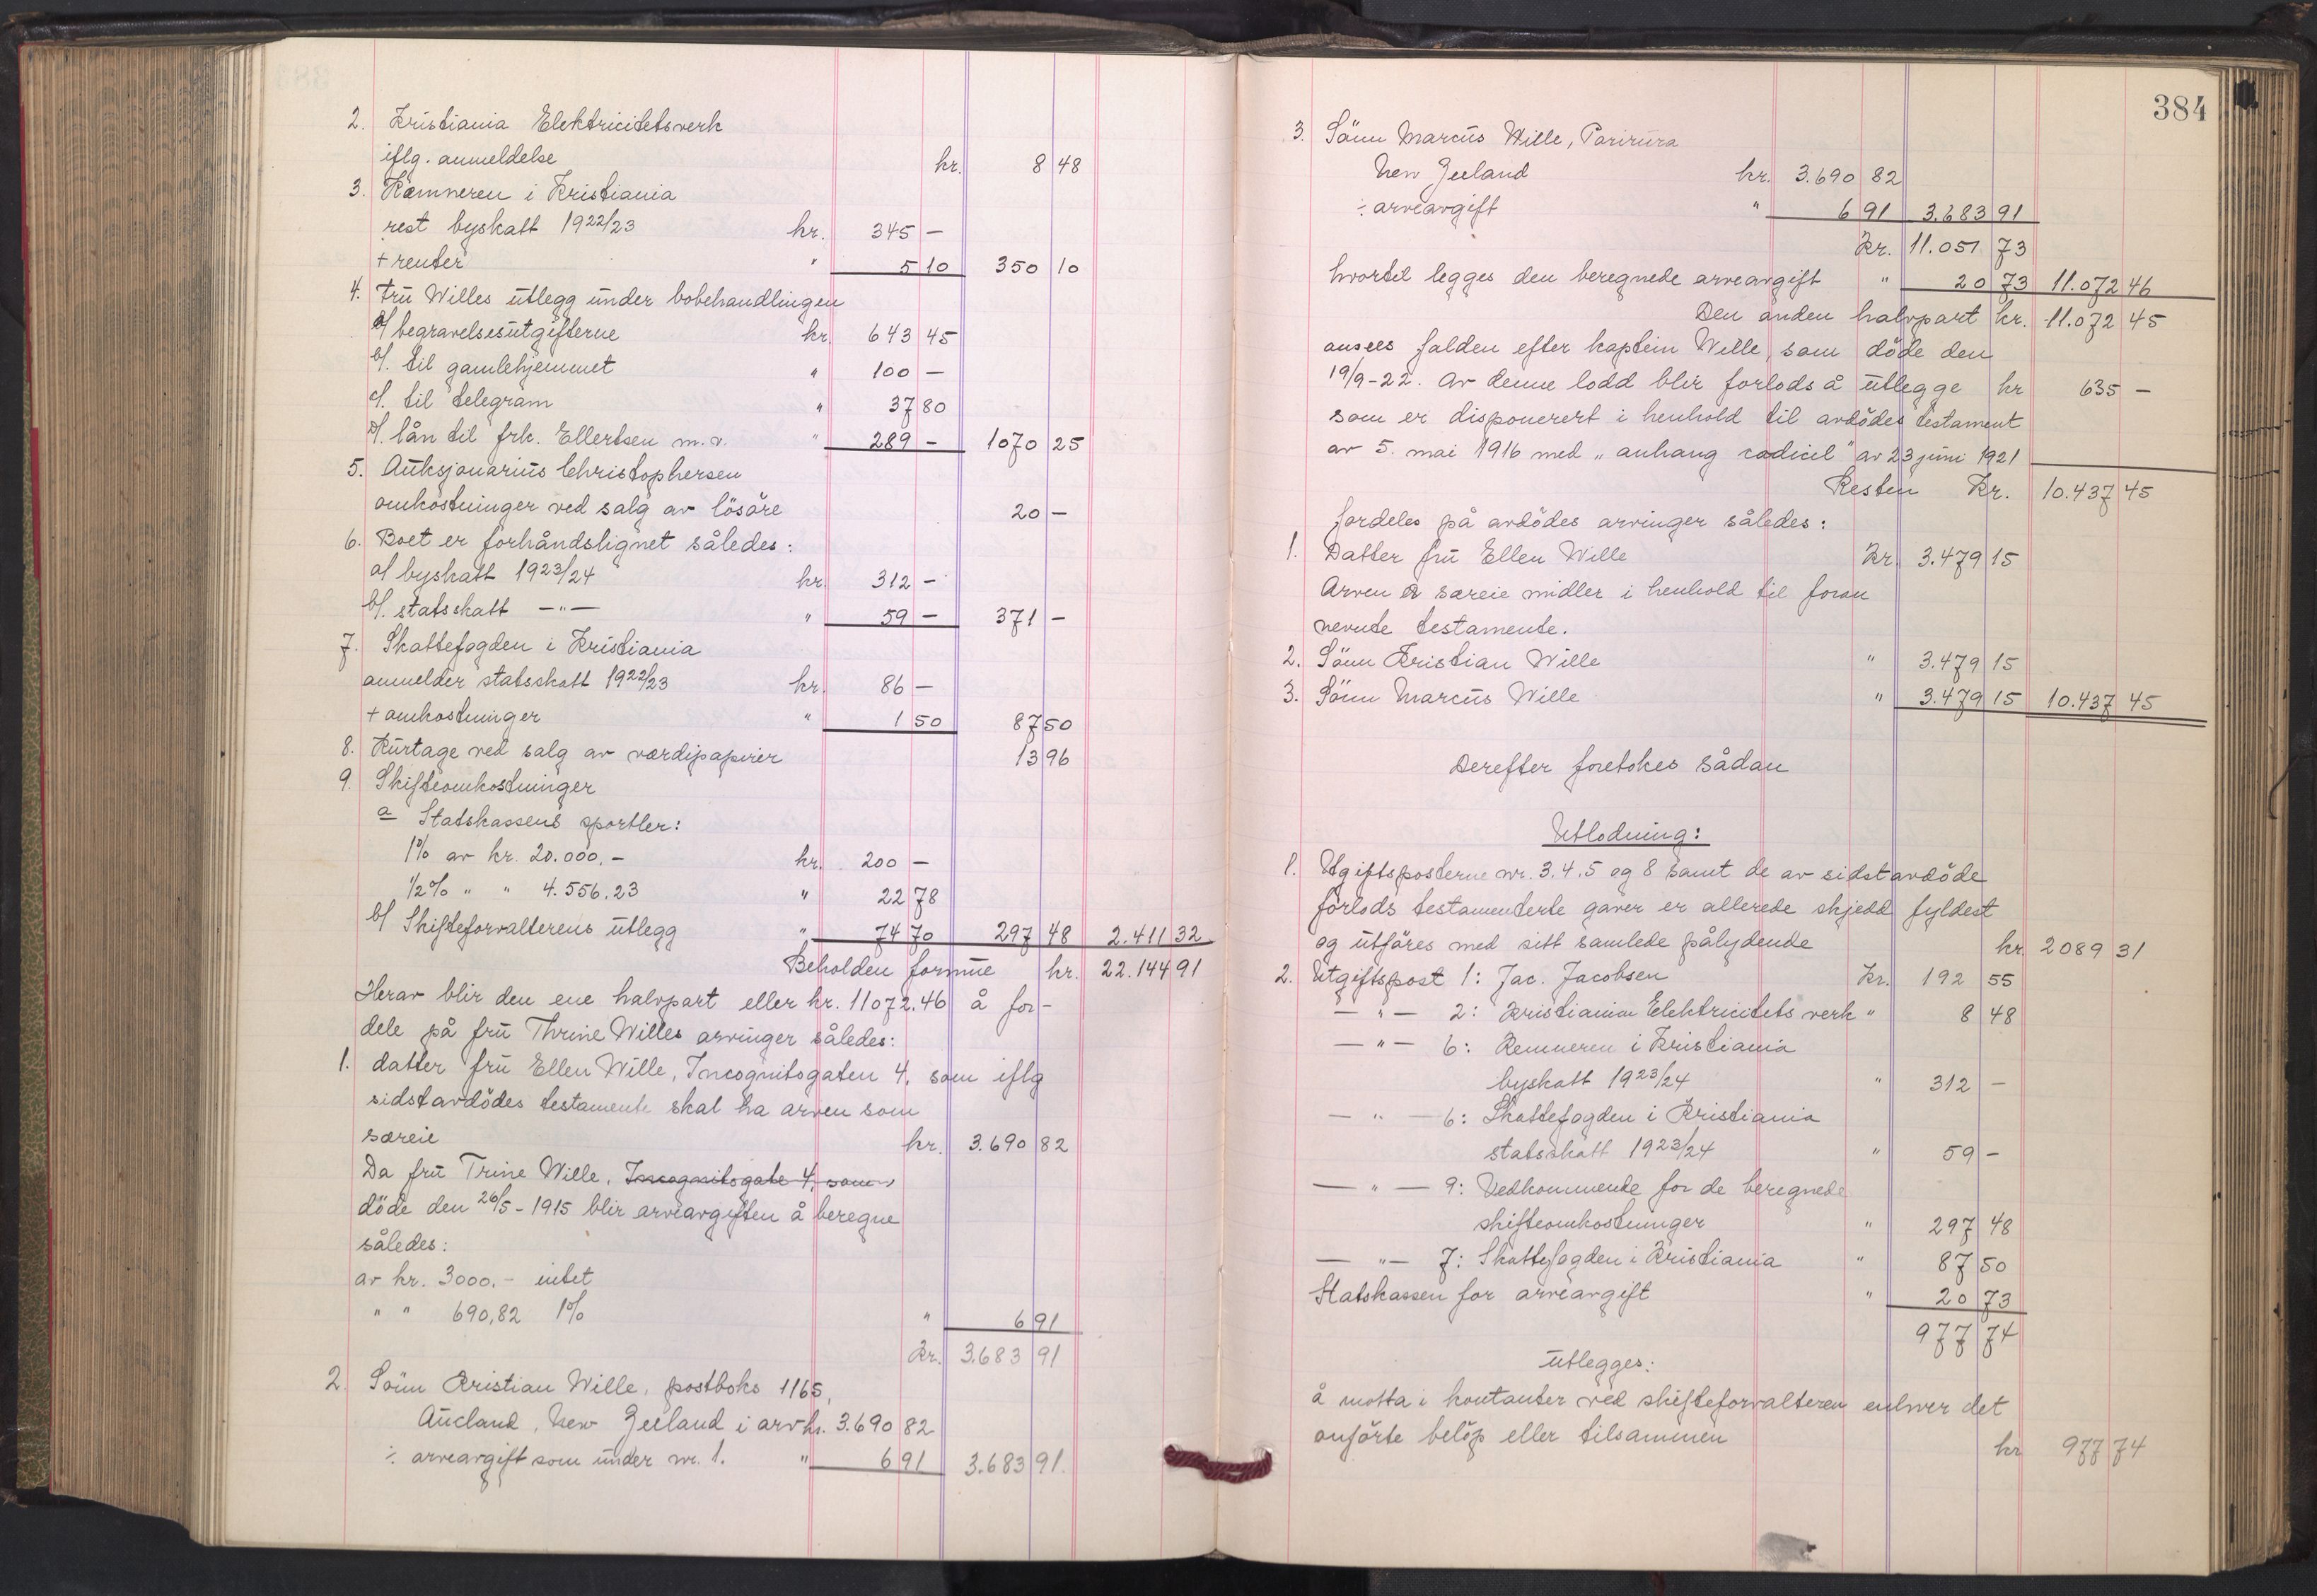 2. Kristiania Elektricitetsverk
iflg. anmeldelse kr. 8 48
3. Kæmneren i Kristiania
rest byskatt 1922/23 kr. 345 —
+ renter " 5 10 350 10
4. Fru Willes utlegg under bobehandlingen
a/ begravelsesutgifterne kr. 643 45
b/. til gamlehjemmet " 100 —
c/. til telegram " 37 80
d/. lån til frk. Ellertsen m.v. " 289 — 1070 25
5. Auksjonarius Christophersen
omkostninger ved salg av lösöre 20 —
6. Boet er forhåndslignet således:
a/ byskatt 1923/24 kr. 312 —
b/. statsskatt —"— " 59 — 371 —
7. Skattefogden i Kristiania
anmelder statsskatt 1922/23 kr. 86 —
+ omkostninger " 1 50 87 50
8. Kurtage ved salg av værdipapirer 13 96
9. Skifteomkostninger
a Statskassens sportler:
1% av kr. 20.000.— kr. 200 —
1/2% " " 4.556.23 " 22 78
b/ Skifteforvalterens utlegg " 74 70 297 48 2.411 32
Beholden formue kr. 22.144 91
Herav blir den ene halvpart eller kr. 11072.46 å for-
dele på fru Thrine Willes arvinger således:
1. datter fru Ellen Wille, Incognitogaten 4, som iflg
sidstavdödes testamente skal ha arven som
særeie kr. 3.690 82
Da fru Trine Wille, Incognitogate 4, som
döde den 26/5-1915 blir arveavgiften å beregne
således:
av kr. 3000.— intet
" " 690,82 1% " 6 91
Kr. 3.683 91
2. Sönn Kristian Wille, postboks 1165,
Aucland, New Zeeland i arv kr. 3.690 82
÷ arveavgift som under nr. 1. " 6 91 3.683 91.
384
3. Sönn Marcus Wille, Parirura
New Zeeland kr. 3.690 82
÷ arveavgift " 6 91 3.683 91
Kr. 11.051 73
hvortil legges den beregnede arveavgift " 20 73 11.072 46
Den anden halvpart kr. 11.072 45
ansees falden efter kaptein Wille, som döde den
19/9-22. Av denne lodd blir forlods å utlegge kr 635 —
som er disponerert i henhold til avdödes testament
av 5. mai 1916 med „anhang codicil" av 23 juni 1921
Resten Kr. 10.437 45
fordeles på avdödes arvinger således:
1. Datter fru Ellen Wille Kr. 3.479 15
Arven er særeie midler i henhold til foran
nevnte testamente.
2. Sönn Kristian Wille " 3.479 15
3. Sönn Marcus Wille " 3.479 15 10.437 45
Derefter foretokes sådan
Utlodning:
1. Utgiftsposterne nr. 3.4.5 og 8 samt de av sidstavdöde
forlods testamenterte gaver er allerede skjedd fyldest
og utföres med sitt samlede pålydende kr. 2089 31
2. Utgiftspost 1: Jac. Jacobsen Kr. 192 55
— " — 2: Kristiania Elektricitets verk " 8 48
— " — 6: Kemneren i Kristiania
byskatt 1923/24 " 312 —
— " — 6: Skattefogden i Kristiania
statsskatt 1923/24 " 59 —
— " — 9: Vedkommende for de beregnede
skifteomkostninger " 297 48
— " — 7: Skattefogden i Kristiania " 87 50
Statskassen for arveavgift " 20 73
977 74
utlegges:
å motta i kontanter ved skifteforvalteren enhver det
anförte belöp eller tilsammen kr 977 74